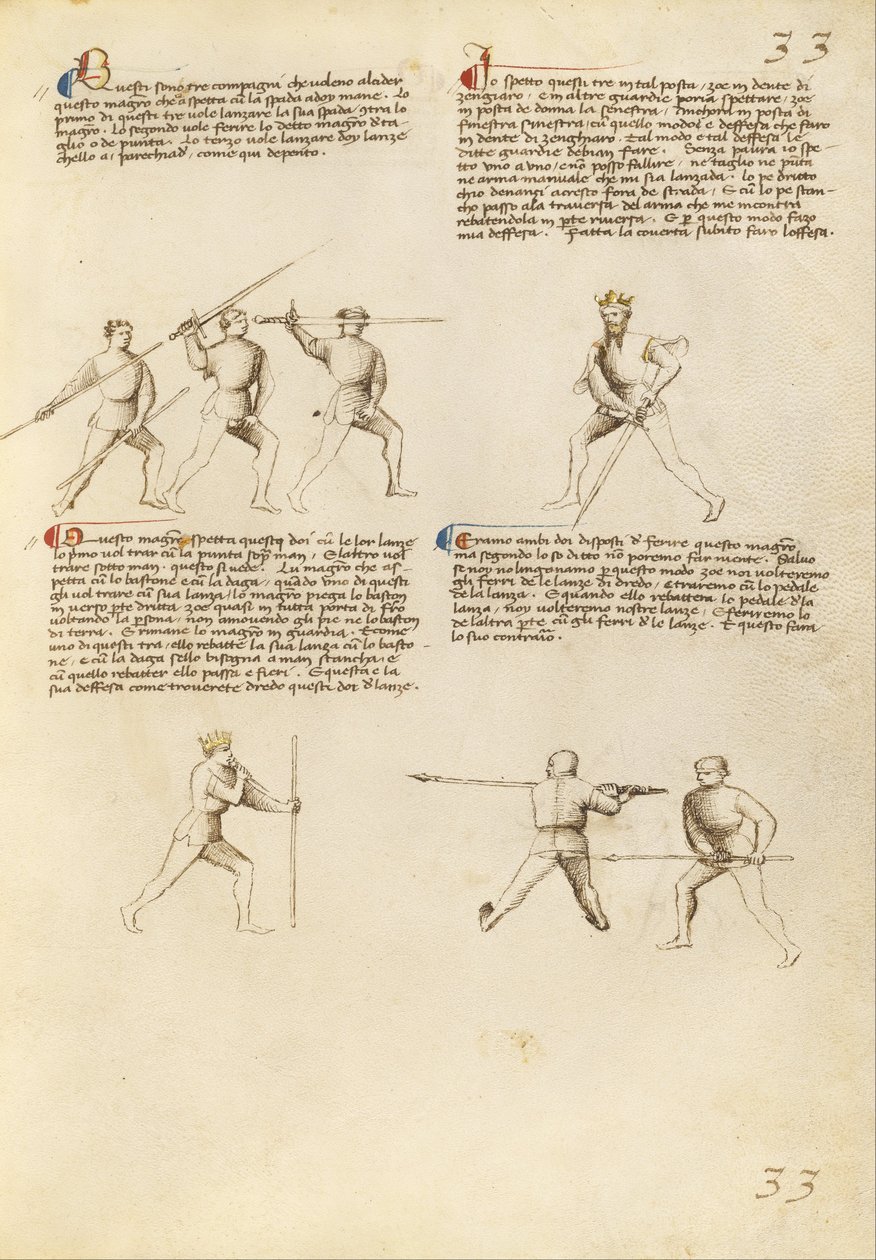 33
Questi sono tre compagni che voleno alcider
questo magro che aspetta cū la spada a doy mane. Lo
primo di questi tre vole lanzare la sua spada 9tra lo
magro. Lo segondo vole ferire lo detto magro d'ta-
glio o de punta. Lo terzo vole lanzare doy lanze
ch'ello a apparechiad', come qui depento.
Io spetto questi tre in tal posta, zoe in dente di
zengiaro, e in altre guardie poria spettare, zoe
in posta de donna la senestra, Anchora in posta di
finestra sinestra, cū quello modo e deffesa che faro
in dente di zenghiaro. Tal modo e tal deffesa le
ditte guardie debian fare. Senza paura io spe-
tto uno a uno, e nō posso fallire, ne taglio ne pūta
ne arma manuale che mi sia lanzada. lo pe dritto
chio denanzi acresco fora de strada, E cū lo pe stan-
cho passo ala traversa del arma che me incontra
rebatendola in pte riversa. E p questo modo fazo
mia deffesa. Fatta la coverta subito faro loffesa.
Questo magro spetta questi doi cū le lor lanze
lo pmo vol trar cū la punta sopra man, E l altro vol
trare sotto man questo si vede. Lu magro che as-
petta cū lo bastone e cū la daga, quādo uno di questi
gli vol trare cū sua lanza, lo magro piega lo baston
in verso pte dritta, zoe quasi in tutta porta di fēro
voltando la psona, non amovendo gli pie ne lo baston
di terra. E rimane lo magro in guardia. E come
uno di questi tra, ello rebatte la sua lanza cū lo basto
ne, e cū la daga sello bisogna a man stancha, e
cū quello rebatter ello passa e fieri. E questa e la
sua deffesa come troverete dredo questi doi d'lanze.
Eramo ambi doi disposti d' ferire questo magro
ma segondo lo so ditto nō poremo far niente. Salvo
se noy no lingonamo p questo modo zoe noi volteremo
gli ferri de le lanze di dredo, e traremo cū lo pedale
de la lanza. E quando ello rebattera lo pedale d'la
lanza, noy volteremo nostre lanze, E feriremo lo
de laltra pte cū gli ferri d' le lanze. E questo fara
lo suo contrario.
33